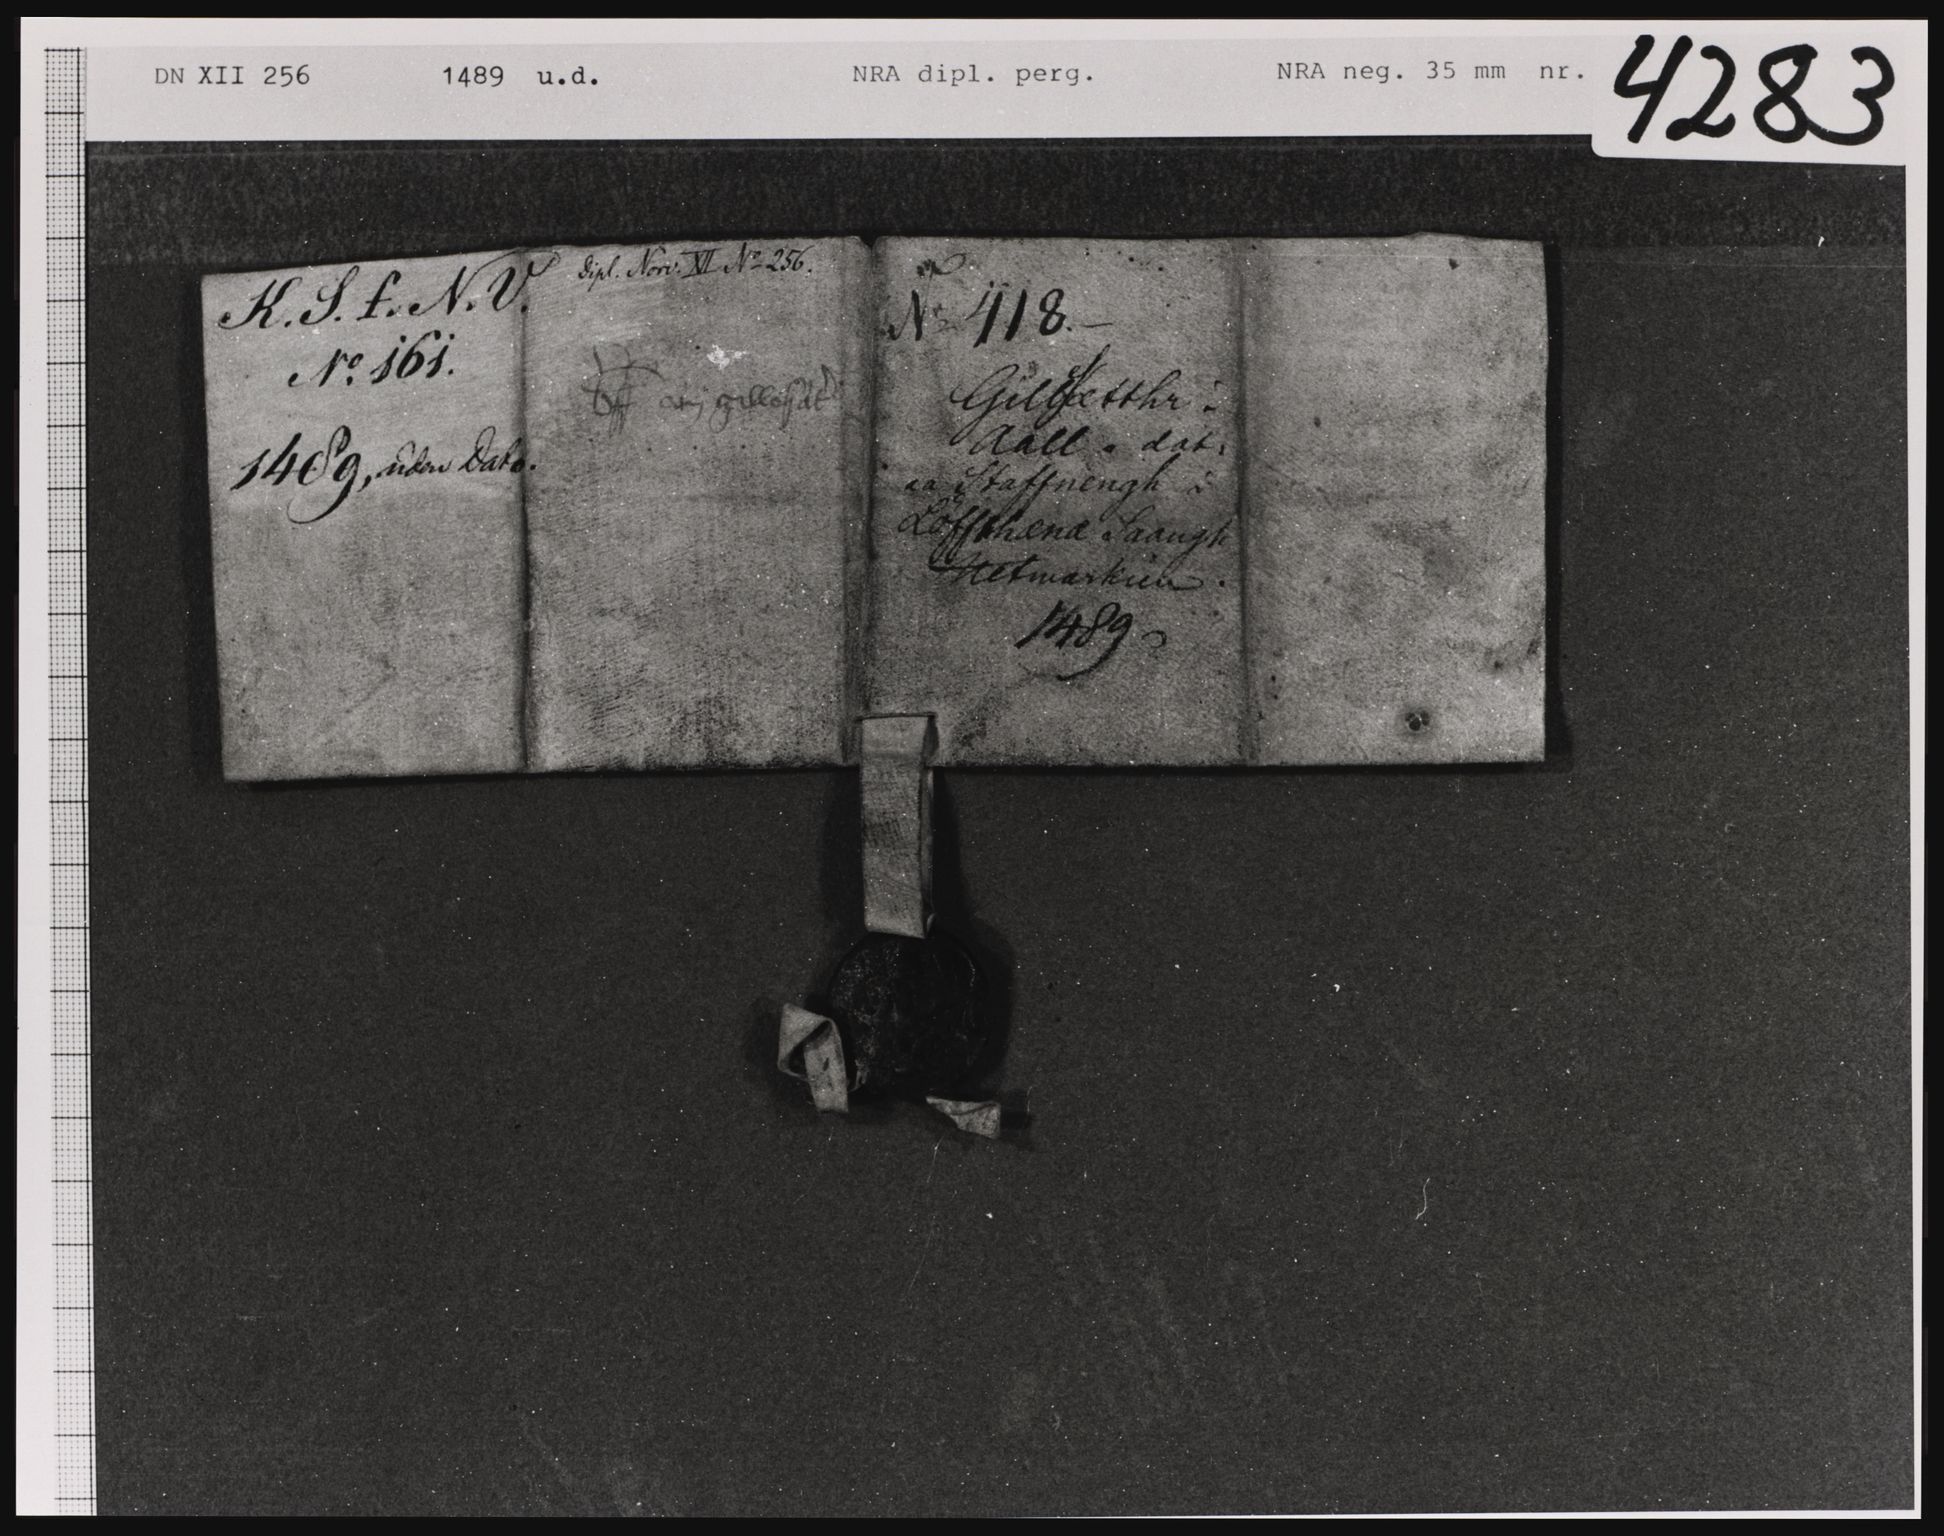 DN XII 256 1489 u.d. NRA dipl. perg. NRA neg. 35 mm nr. 4283
K. S. f. N. V.
No. 161.
1489, uden Dato.
Dipl. Norv. XII No 256.
No 418.
Gilsætthr i
Aall. dat.
aa Staffnengh i
Løffthæna Saangh
Hetmarkien.
1489